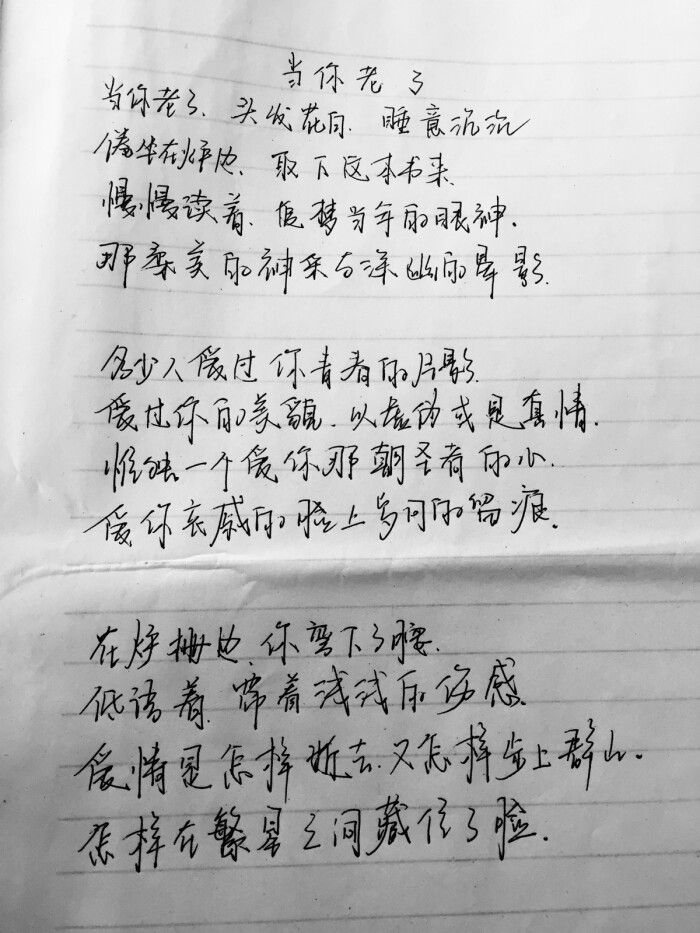 当你老了
当你老了、头发花白、睡意沉沉
倦坐在炉边、取下这本书来
慢慢读着、追梦当年的眼神、
那柔美的神采与深幽的晕影
多少人爱过你青春的片影
爱过你的美貌、以虚伪或是真情、
惟独一个爱你那朝圣者的心、
爱你哀戚的脸上岁月的留痕、
在炉栅边、你弯下了腰、
低语着、带着浅浅的伤感
爱情是怎样逝去、又怎样步上群山、
怎样在繁星之间藏住了脸、